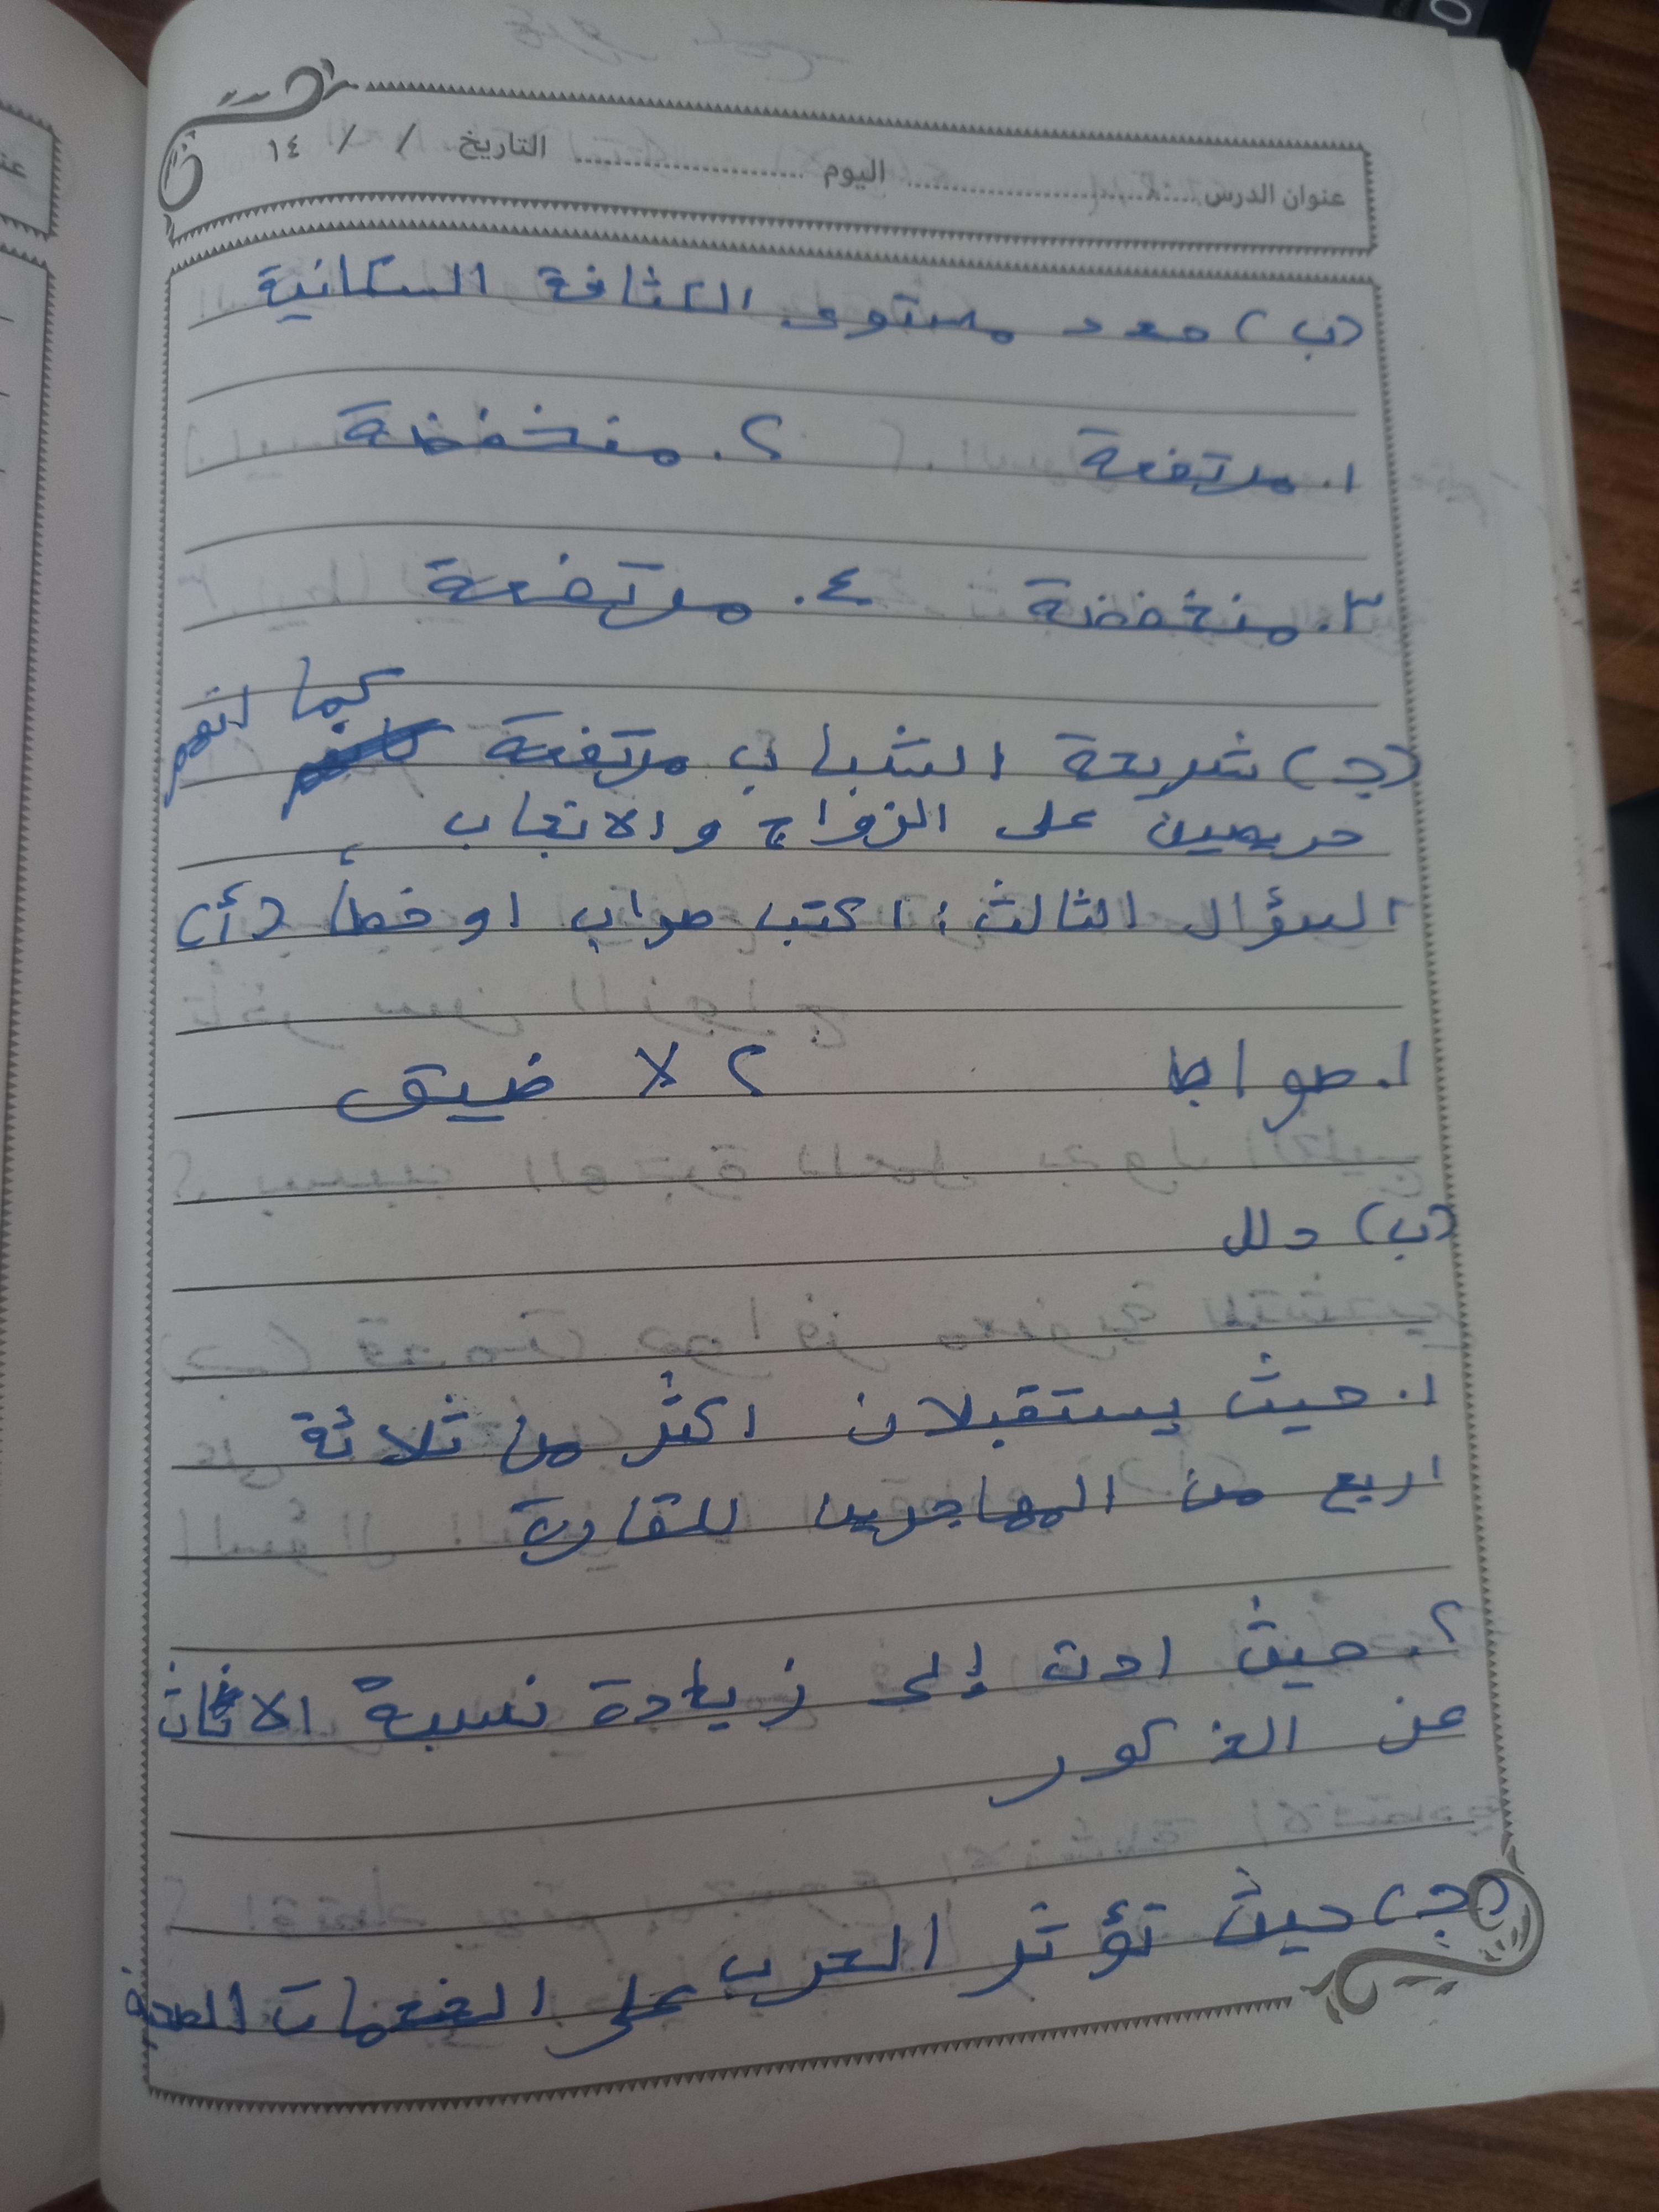 عنوان الدرس ........ اليوم ........ التاريخ / / ١٤
(ب) حدد مستوى الكثافة السكانية
١. مرتفعة ٢. منخفضة
٣. منخفضة ٤. مرتفعة
(ج) شريحة الشباب مرتفعة كما انهم
حريصين على الزواج والانجاب
السؤال الثالث: اكتب صواب او خطأ (أ)
١. صوابا ٢ لا ضيق
(ب) دلل
١. حيث يستقبلان اكثر من ثلاثة
اربع من المهاجرين للقارة
٢. حيث ادت إلى زيادة نسبة الاناث
عن الذكور
(ج) حيث تؤثر الحرب على الخدمات الصحية